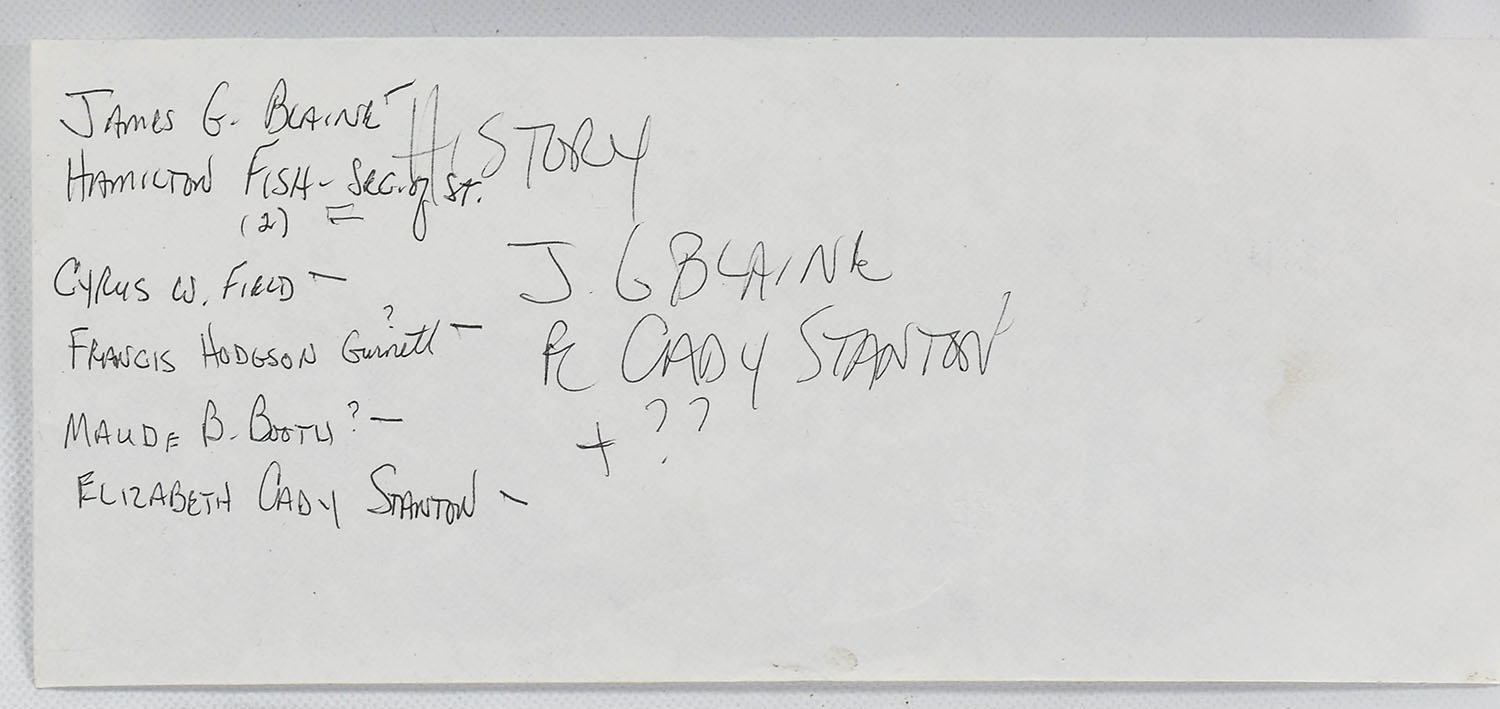 James G. Blaine -
Hamilton Fish - Sec. of St.
(2) =
Cyrus W. Field -
?
Francis Hodgson Gurnett -
Maude B. Booth? -
Elizabeth Cady Stanton -
HISTORY
J. G BLAINE
CADY STANTON
+ ??